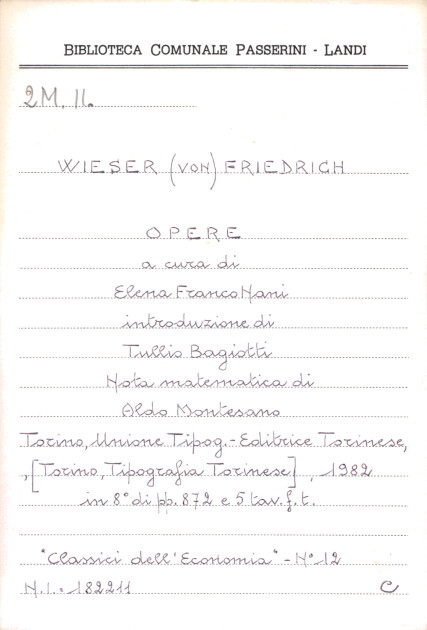 BIBLIOTECA COMUNALE PASSERINI - LANDI
2M. II.
WIESER (VON) FRIEDRICH
OPERE
a cura di
Elena Franco Nani
introduzione di
Tullio Bagiotti
Nota matematica di
Aldo Montesano
Torino, Unione Tipog.-Editrice Torinese,
, [Torino, Tipografia Torinese], 1982
in 8° di pp. 872 e 5 tav. f. t.
"Classici dell'Economia" - N° 12
N.I. = 182211 C